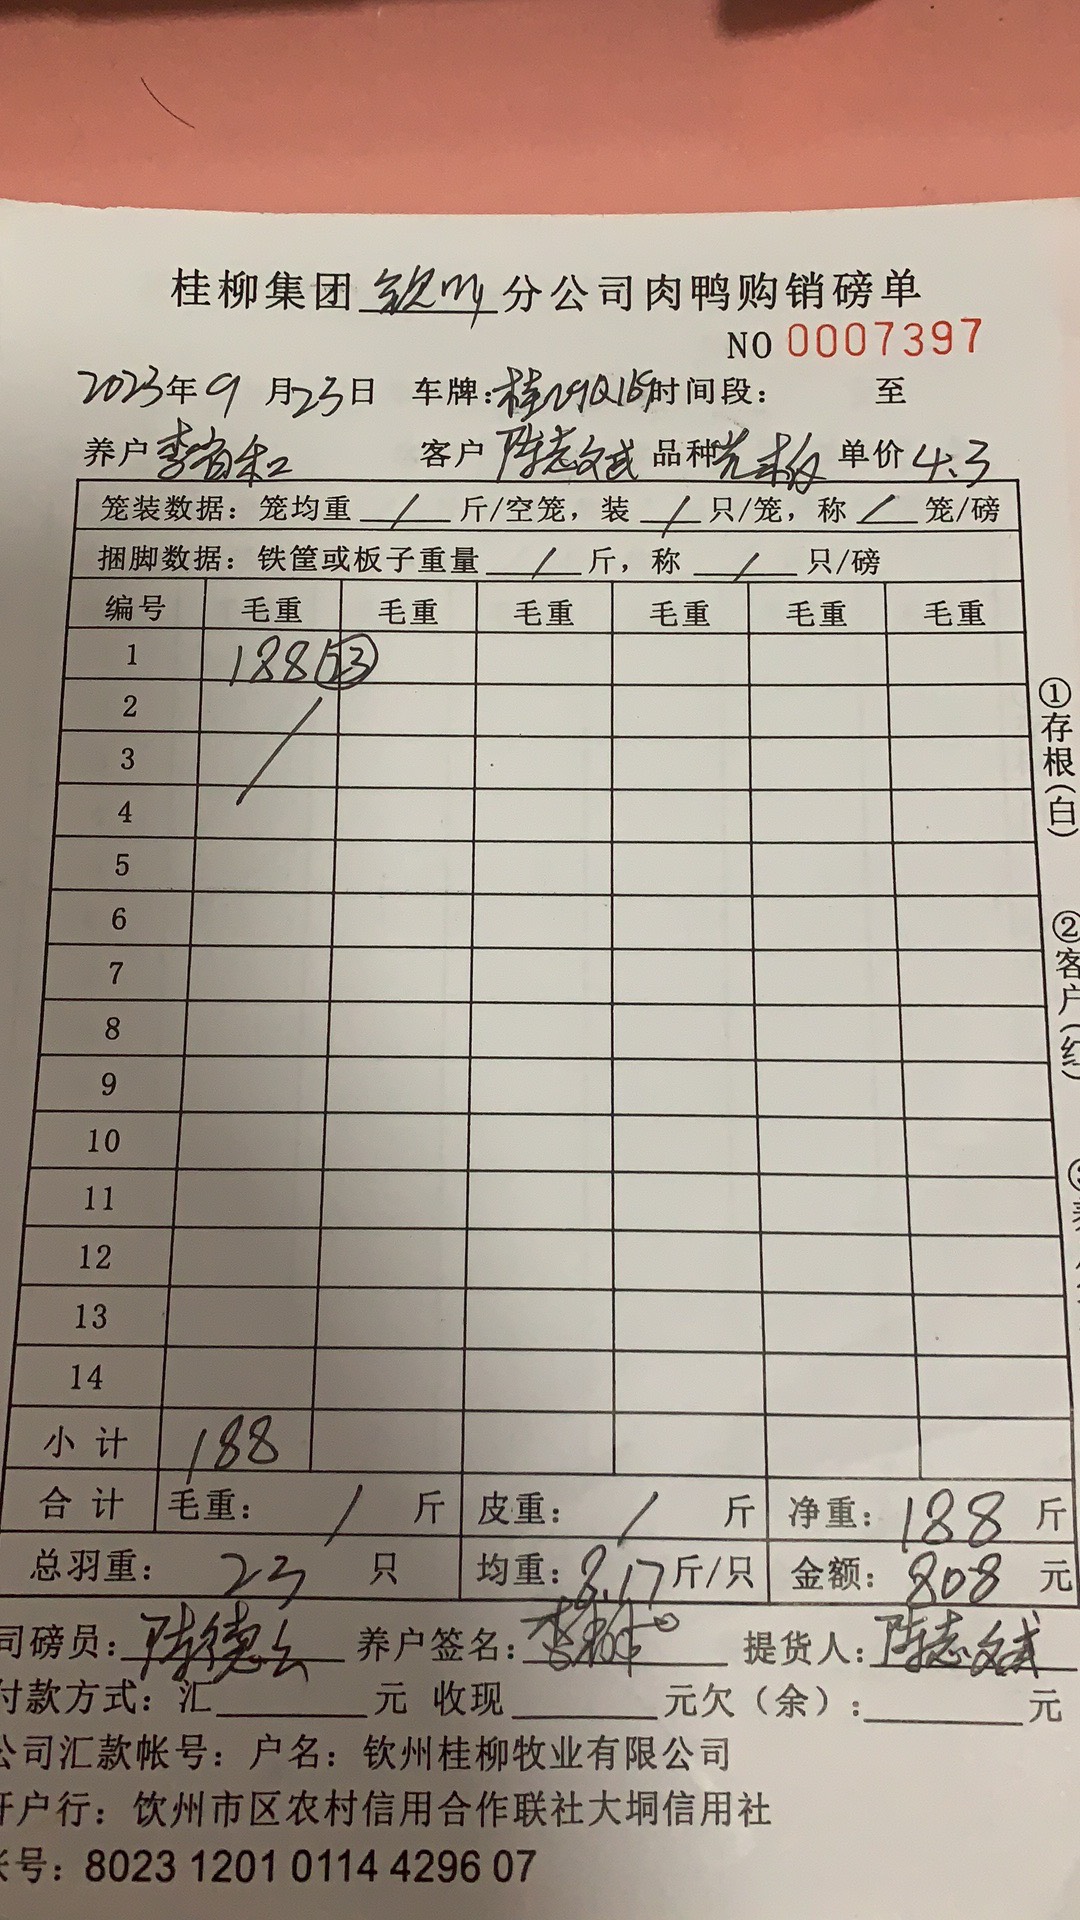 桂柳集团 钦州 分公司肉鸭购销磅单
NO 0007397
2023年 9 月23日 车牌: 时间段: 至
养户 客户 陈志斌 品种 单价 4.3
笼装数据: 笼均重 / 斤/空笼, 装 / 只/笼, 称 / 笼/磅
捆脚数据: 铁筐或板子重量 / 斤, 称 / 只/磅
编号 毛重 毛重 毛重 毛重 毛重 毛重
1 188
2
3
4
5
6
7
8
9
10
11
12
13
14
小 计 188
合 计 毛重: / 斤 皮重: / 斤 净重: 188 斤
总羽重: 23 只 均重: 8.17 斤/只 金额: 808 元
司磅员: 陈德云 养户签名: 提货人: 陈志斌
付款方式: 汇 元 收现 元欠(余): 元
公司汇款帐号: 户名: 钦州桂柳牧业有限公司
开户行: 钦州市区农村信用合作联社大垌信用社
帐号: 8023 1201 0114 4296 07
①存根(白)
②客户(红)